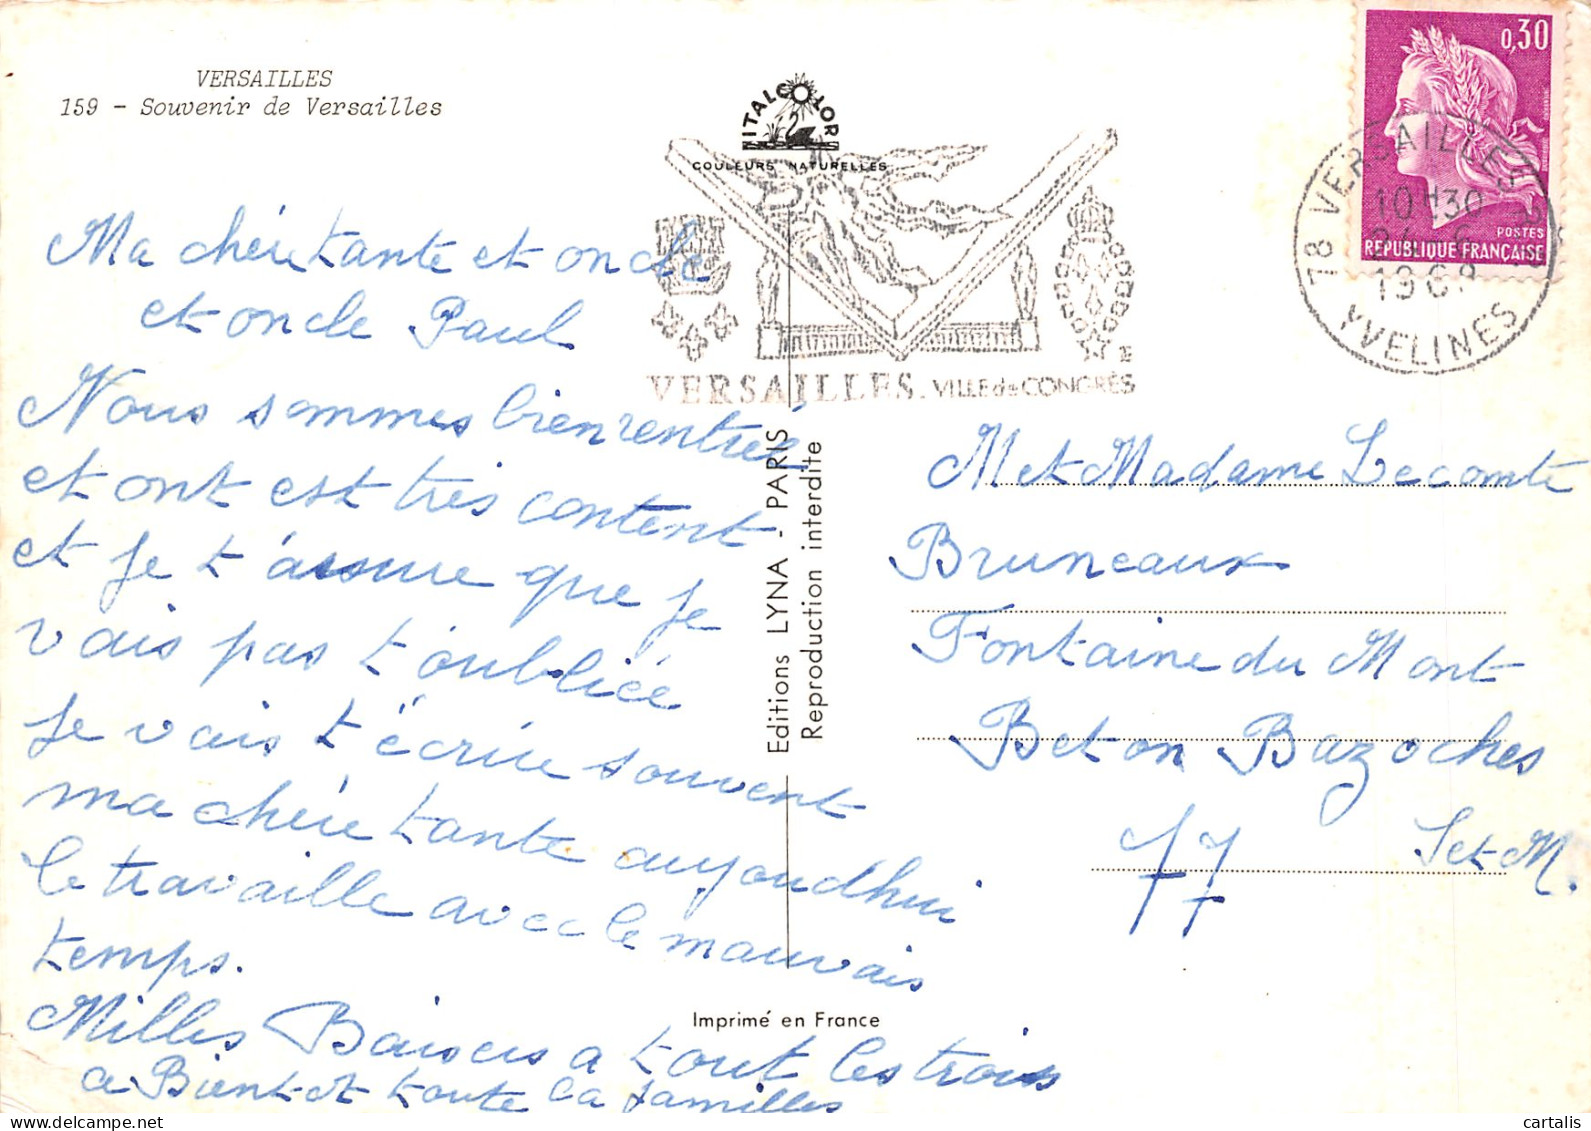 VERSAILLES
159 - Souvenir de Versailles
ITALCOLOR
COULEURS NATURELLES
0,30
POSTES
REPUBLIQUE FRANÇAISE
78 VERSAILLES
10H30
1968
YVELINES
VERSAILLES. VILLE de CONGRÈS
Ma chérie tante et oncle
et oncle Paul
Nous sommes bien rentrée
et ont est très content
et je t'assure que je
vais pas t'oubliée
je vais t'écrire souvent
ma chérie tante aujoudhui
le travaille avec le mauvais
temps.
Milles Baisers a tout les trois
a Bientot toute la familles
Editions LYNA - PARIS
Reproduction interdite
Imprimé en France
M et Madame Lecomte
Bruneaux
Fontaine du Mont
Beton Bazoches
77 S et M.
cartalis
www.delcampe.net